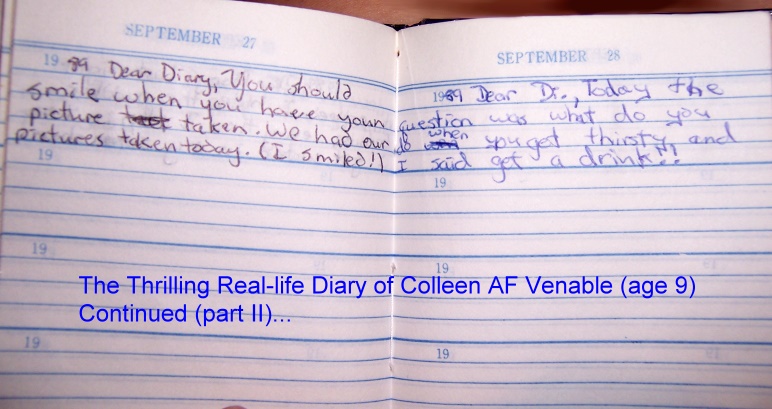 SEPTEMBER 27
1989 Dear Diary, You should
smile when you have your
picture taken. We had our
pictures taken today. (I smiled!)
19
19
19
SEPTEMBER 28
1989 Dear Di., Today the
question was what do you
do when you get thirsty and
I said get a drink!!
19
19
19
The Thrilling Real-life Diary of Colleen AF Venable (age 9)
Continued (part II)...